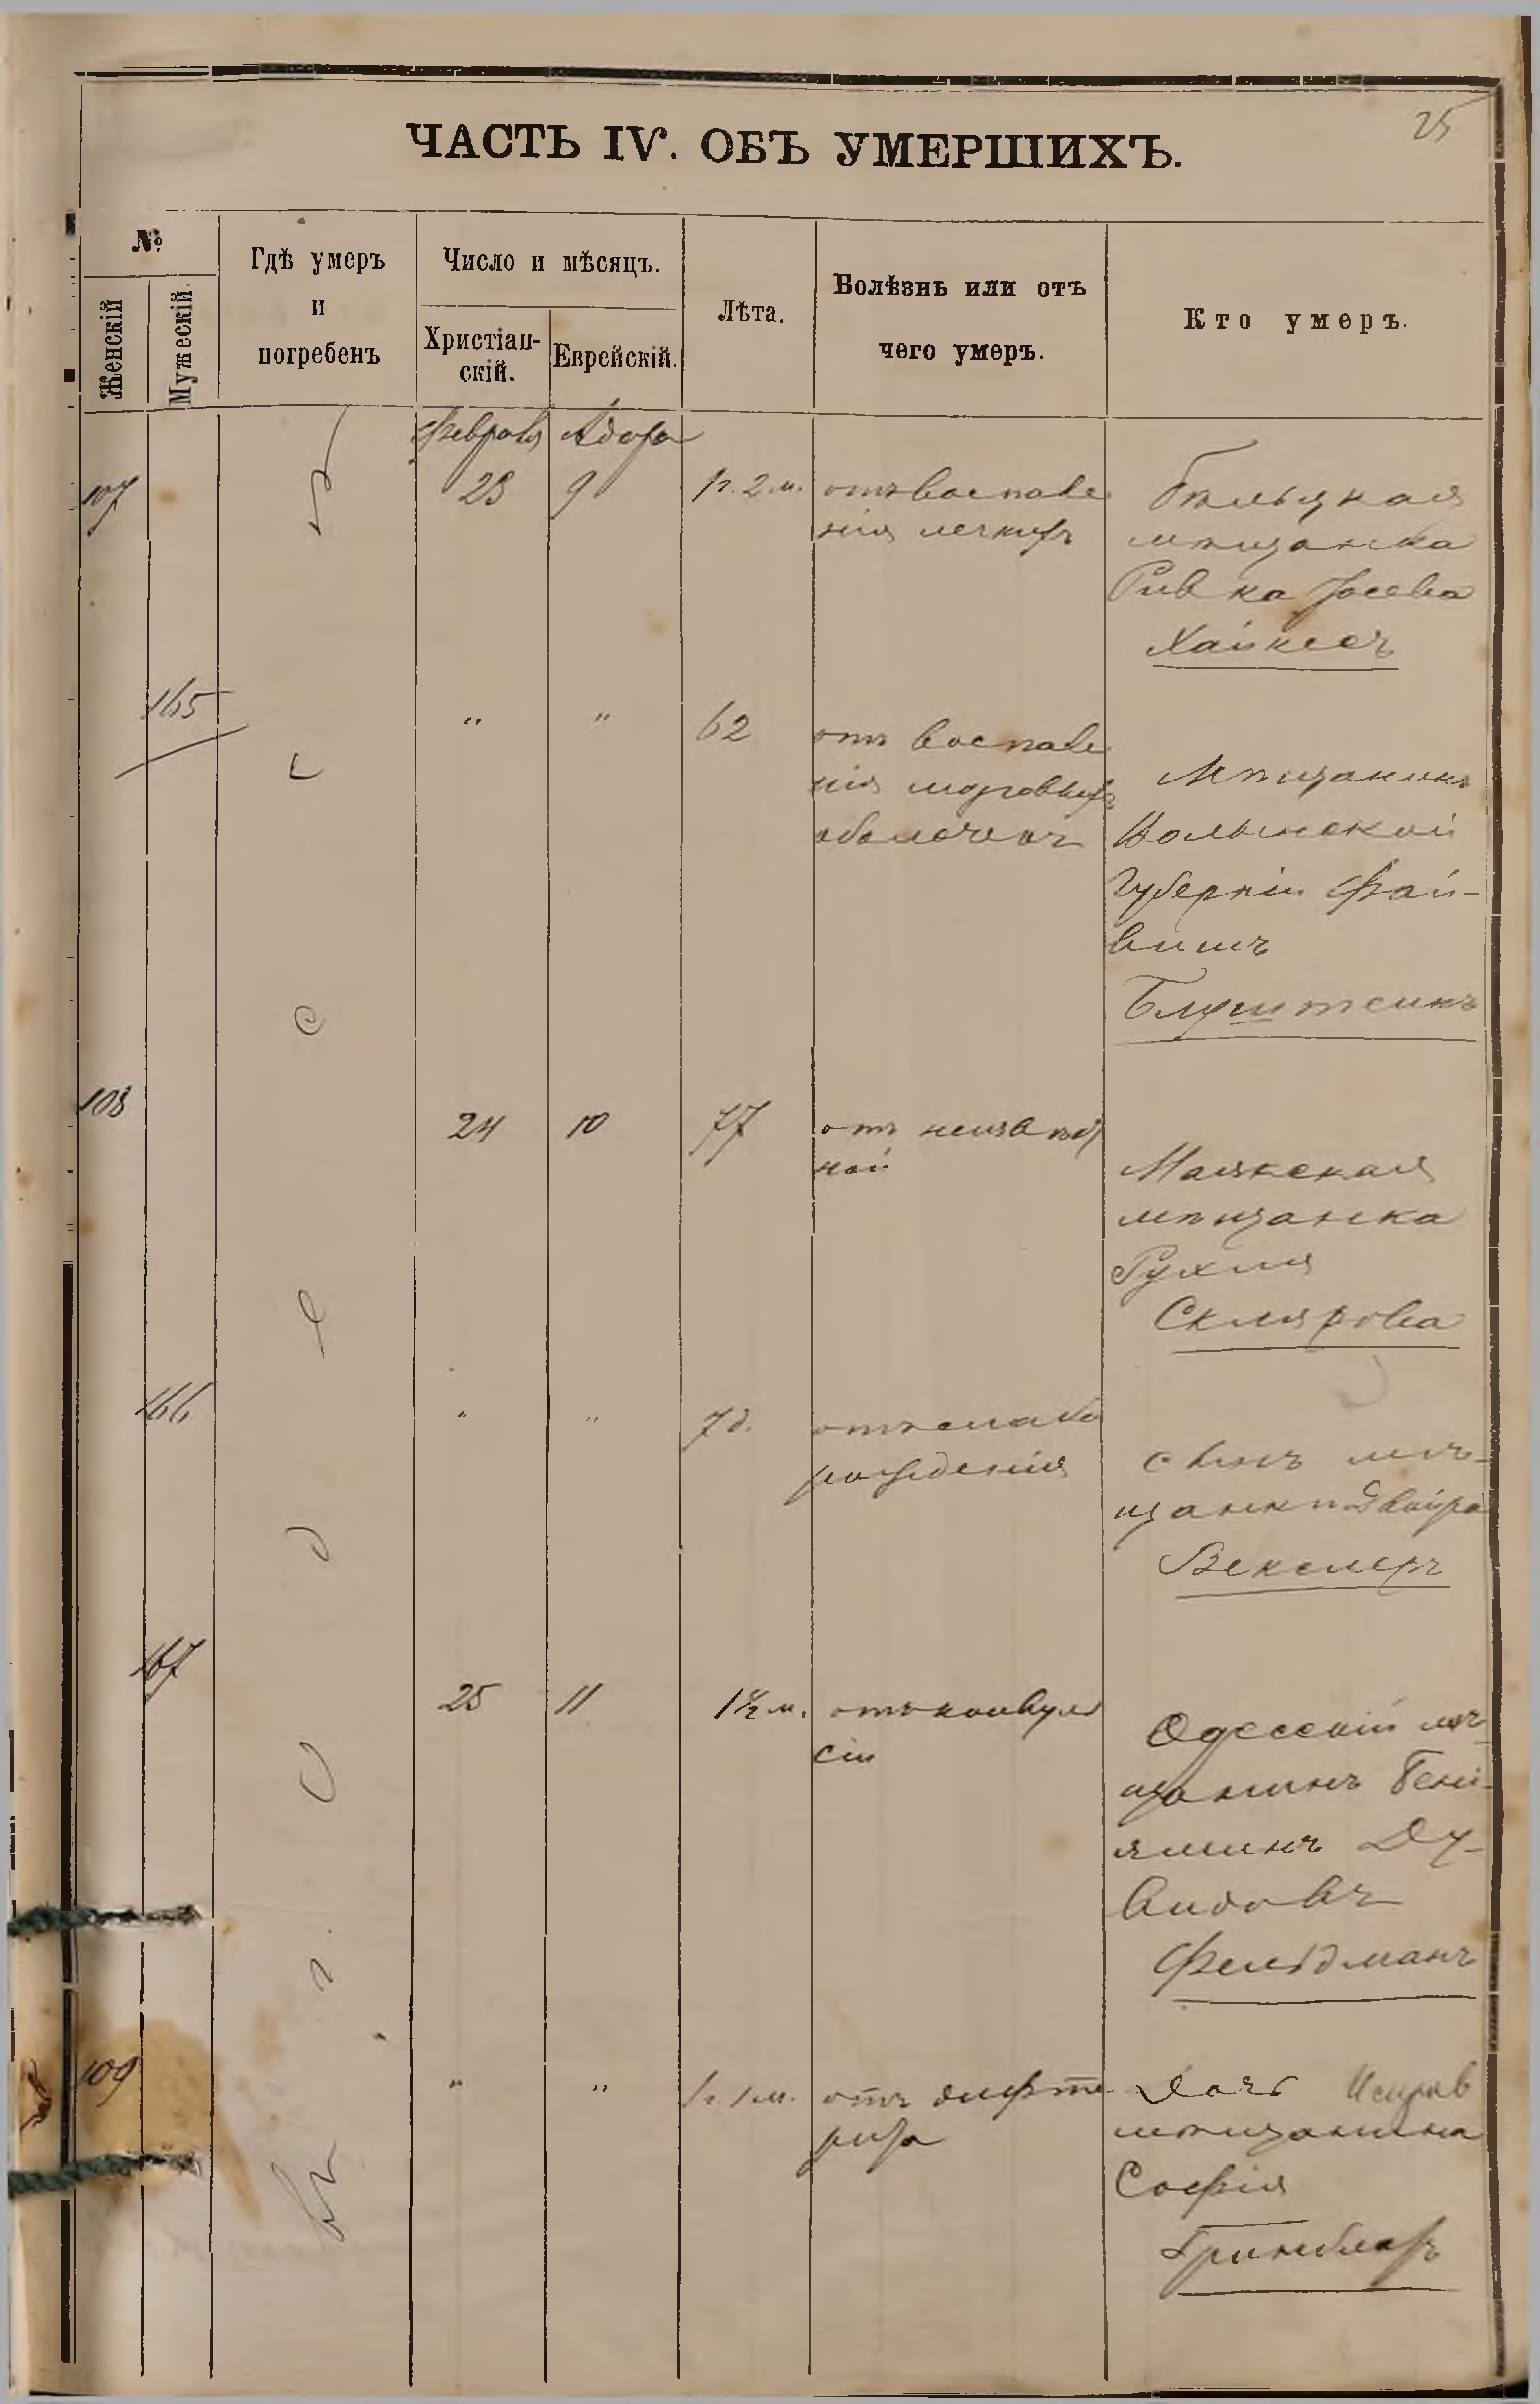 25
ЧАСТЬ IV. ОБЪ УМЕРШИХЪ.
№
Женскій
Мужескій.
Гдѣ умеръ
и
погребенъ
Число и мѣсяцъ.
Христіан-
скій.
Еврейскій.
Лѣта.
Болѣзнь или отъ
чего умеръ.
Кто умеръ.
Февраля Адара
107 23 9 1 г. 2 м. отъ воспале
нія легкихъ
Бѣльцкая
мѣщанка
Ривка Іосева
165 " " 62 отъ воспале
нія мозговыхъ
оболочекъ
Мѣщанинъ
Волынской
Губерніи Фай-
вишъ
108 24 10 77 отъ неизвѣст
ной
Маякская
мѣщанка
Рухля
Склярова
166 " " 7 д. отъ слабо
рожденія
сынъ мѣ-
щанки Двойра
Векслеръ
167 25 11 1½ м. отъ конвуль
сіи
Одесскій мѣ-
щанинъ Бені-
яминъ Ду-
видовъ
Фельдманъ
109 " " 1 г. 1 м. отъ дифте
рита
Дочь
мѣщанина
Софія
Гринблатъ
в
ъ
О
д
е
с
с
ѣ